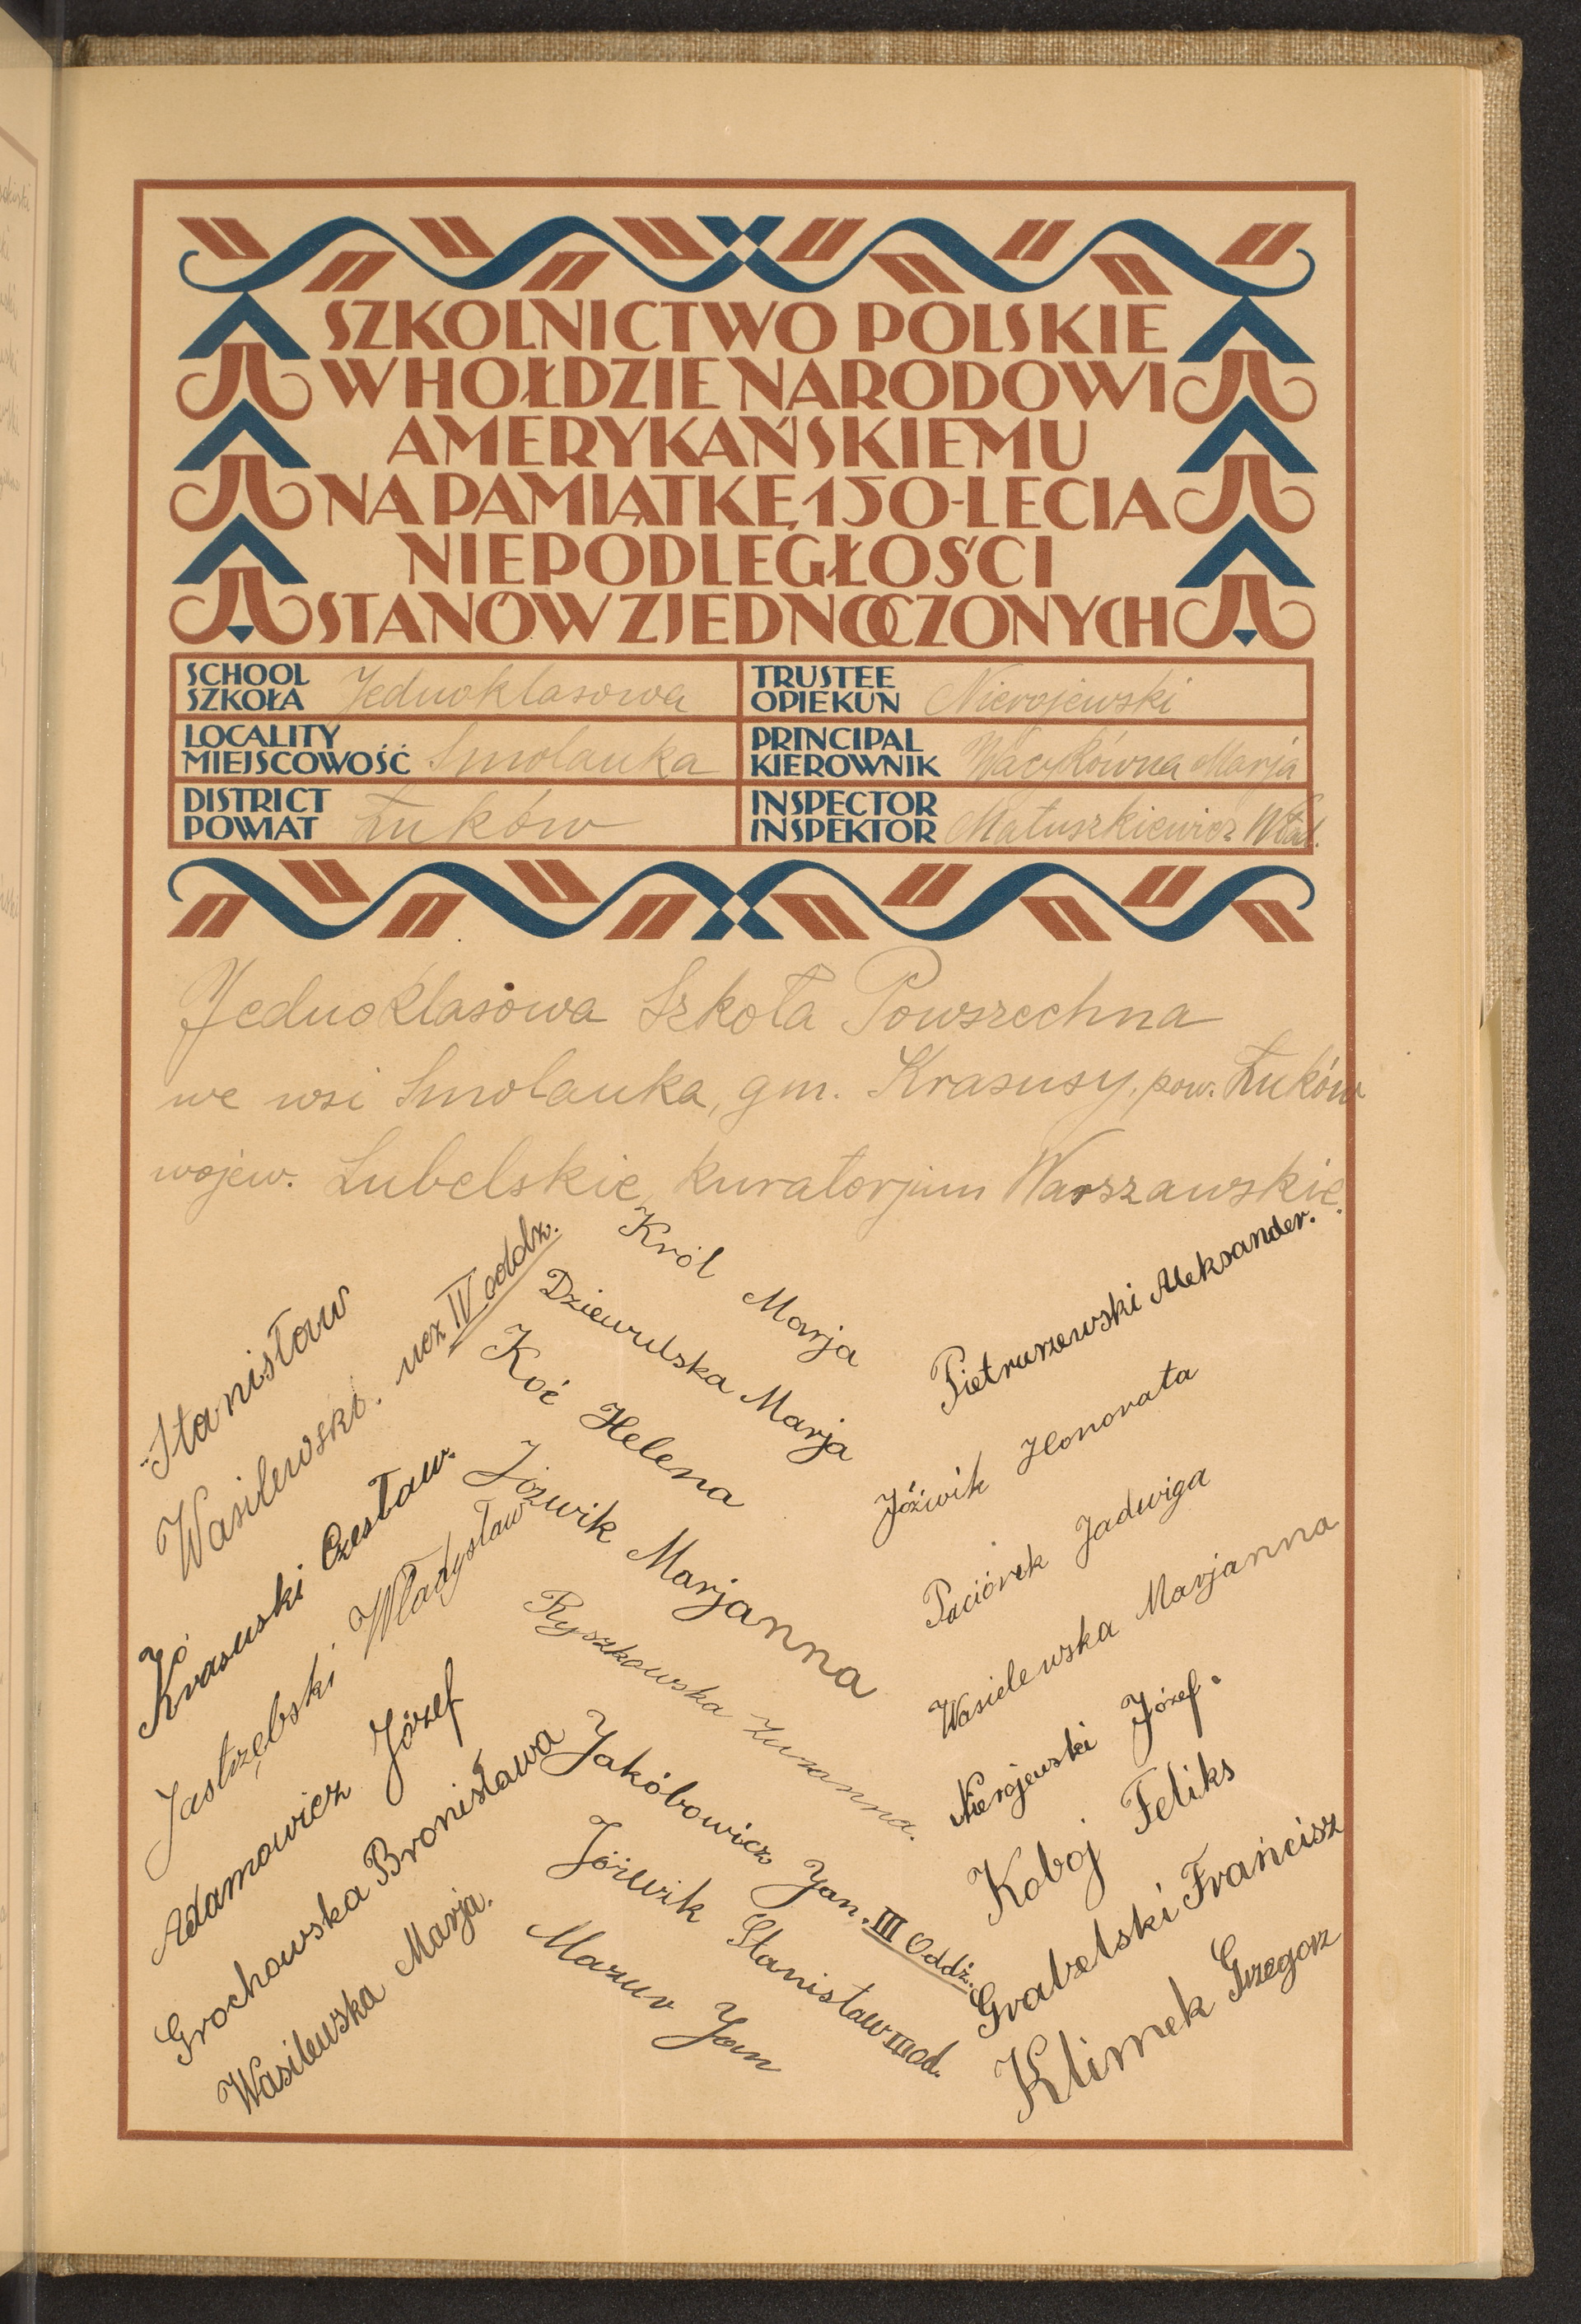 SZKOLNICTWO POLSKIE
W HOŁDZIE NARODOWI
AMERYKAŃSKIEMU
NA PAMIĄTKĘ 150-LECIA
NIEPODLEGŁOŚCI
STANÓW ZJEDNOCZONYCH
SCHOOL
SZKOŁA Jednoklasowa
TRUSTEE
OPIEKUN Nierojewski
LOCALITY
MIEJSCOWOŚĆ Smolanka
PRINCIPAL
KIEROWNIK Marja
DISTRICT
POWIAT Łuków
INSPECTOR
INSPEKTOR Matuszkiewicz Wład.
Jednoklasowa Szkoła Powszechna
we wsi Smolanka, gm. Krasusy, pow. Łuków
wojew. Lubelskie, kuratorjum Warszawskie.
Stanisław
Wasilewski. ucz IV oddz.
Krasuski Czesław.
Jastrzębski Władysław
Adamowicz Józef
Grochowska Bronisława
Wasilewska Marja.
Król Marja
Dziewulska Marja
Koć Helena
Józwik Marjanna
Ryszkowska Zuzanna.
Jakóbowicz Jan. III Oddź.
Jóźwik Stanisław III od.
Mazur Jan
Pietruszewski Aleksander.
Jóźwik Honorata
Paciórek Jadwiga
Wasielewska Marjanna
Nierojewski Józef.
Koboj Feliks
Grabelski Franćisz
Klimek Grzegorz